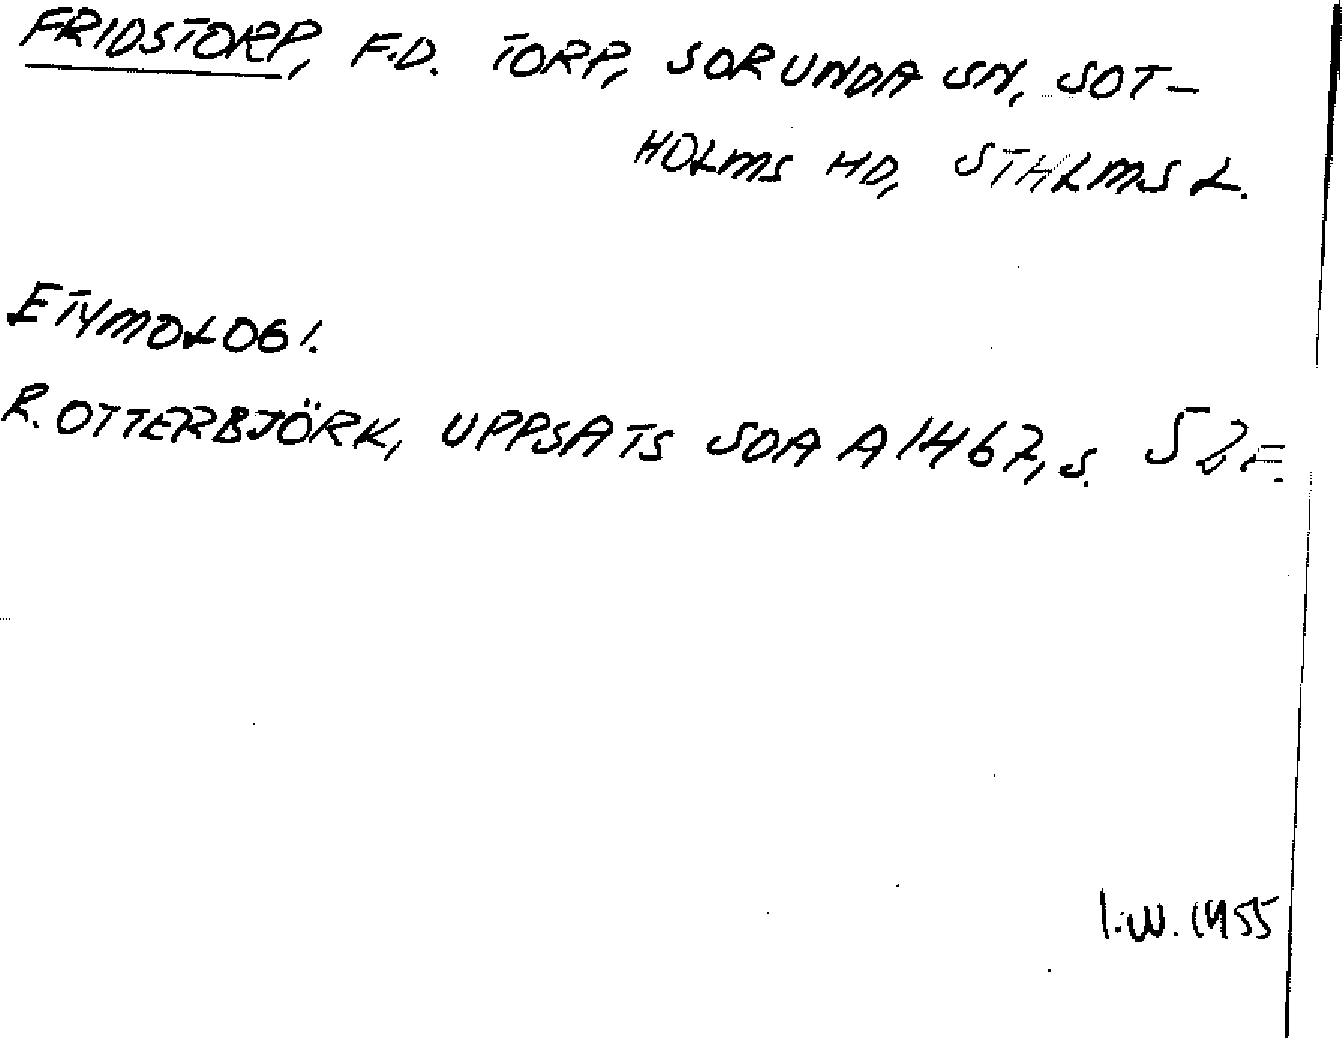 FRIDSTORP, F.D. TORP, SORUNDA SN, SOT-
HOLMS HD, STHLMS L.
ETYMOLOGI.
R. OTTERBJÖRK, UPPSATS SOA A 1467, S.
I.W. 1955